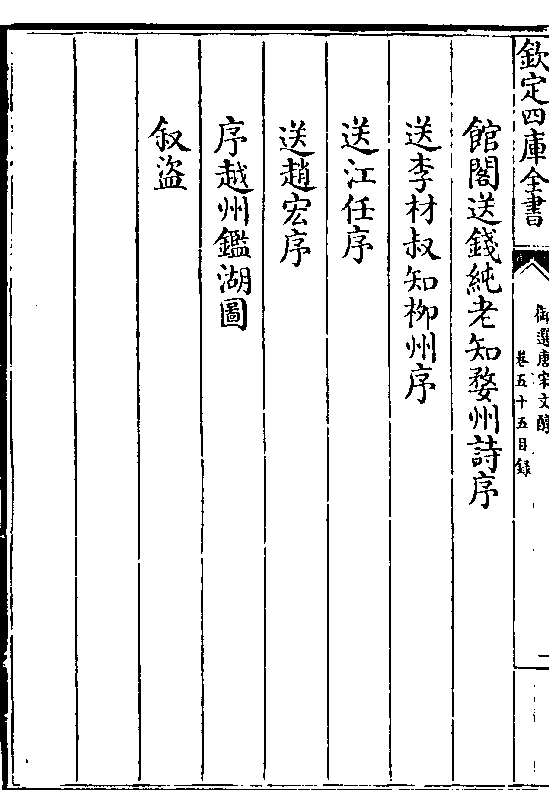 欽定四庫全書
御選唐宋文醇
卷五十五目錄
二
館閣送錢純老知婺州詩序
送李材叔知柳州序
送江任序
送趙宏序
序越州鑑湖圖
叙盜